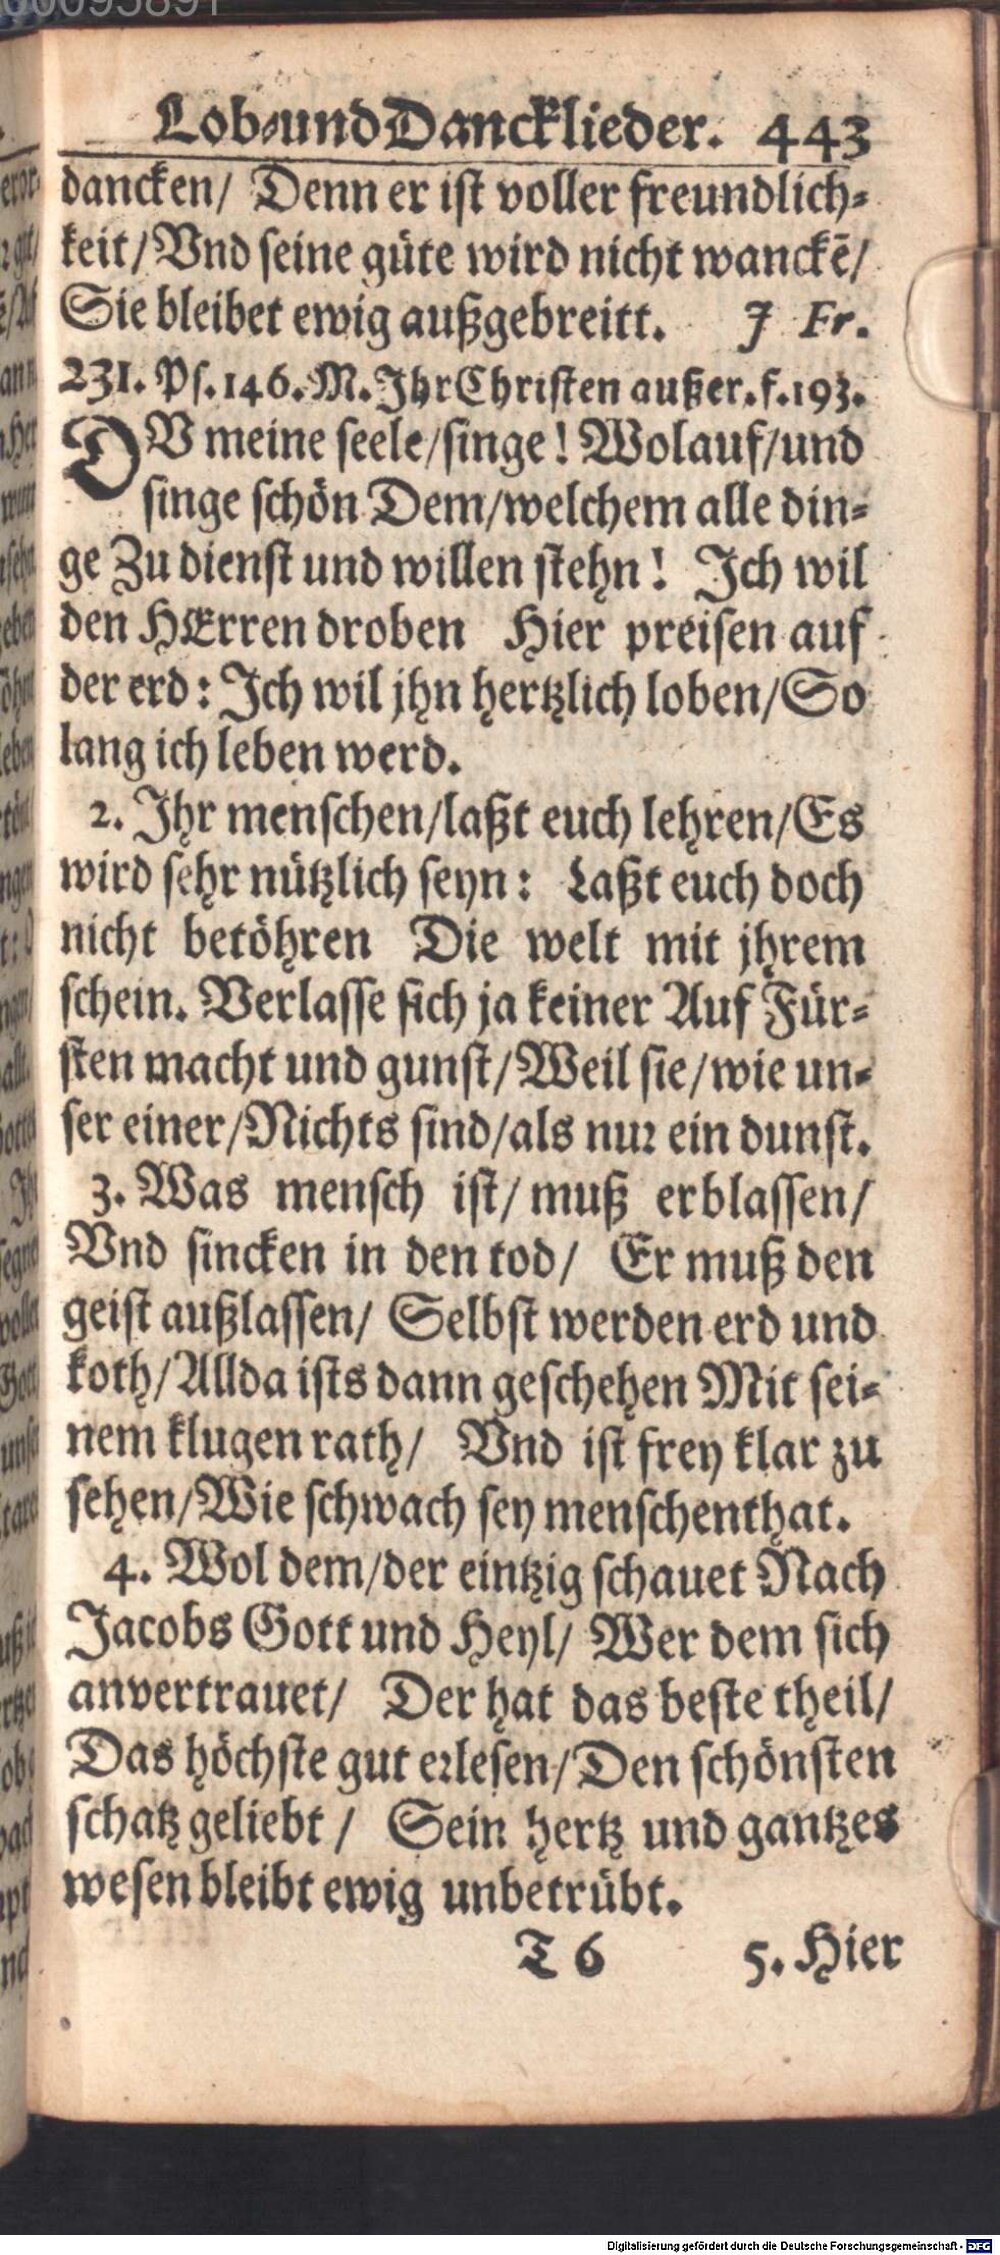 Lob-und Dancklieder. 443
dancken/ Denn er ist voller freundlich-
keit/ Vnd seine güte wird nicht wanckē/
Sie bleibet ewig außgebreitt. J Fr.
231. Ps. 146. M. Ihr Christen außer. f. 193.
DV meine seele/singe! Wolauf/und
singe schön Dem/welchem alle din-
ge Zu dienst und willen stehn! Ich wil
den HErren droben Hier preisen auf
der erd: Ich wil jhn hertzlich loben/So
lang ich leben werd.
2. Ihr menschen/laßt euch lehren/Es
wird sehr nützlich seyn: Laßt euch doch
nicht betöhren Die welt mit jhrem
schein. Verlasse sich ja keiner Auf Für-
sten macht und gunst/Weil sie/wie un-
ser einer/Nichts sind/als nur ein dunst.
3. Was mensch ist/ muß erblassen/
Vnd sincken in den tod/ Er muß den
geist außlassen/ Selbst werden erd und
koth/Allda ists dann geschehen Mit sei-
nem klugen rath/ Vnd ist frey klar zu
sehen/Wie schwach sey menschenthat.
4. Wol dem/der eintzig schauet Nach
Jacobs Gott und Heyl/ Wer dem sich
anvertrauet/ Der hat das beste theil/
Das höchste gut erlesen/Den schönsten
schatz geliebt/ Sein hertz und gantzes
wesen bleibt ewig unbetrübt.
T 6 5. Hier
Digitalisierung gefördert durch die Deutsche Forschungsgemeinschaft - DFG